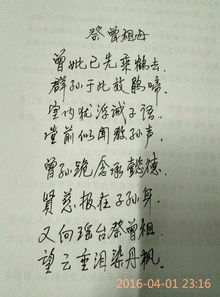 祭曾祖母
曾妣已先乘鹤去
群孙于此放鹃啼
室内犹浮诫子语
堂前似闻教孙声
曾孙跪念承懿德
贤慈报在子孙身
又向瑶台祭曾祖
望云垂泪染丹枫
2016-04-01 23:16